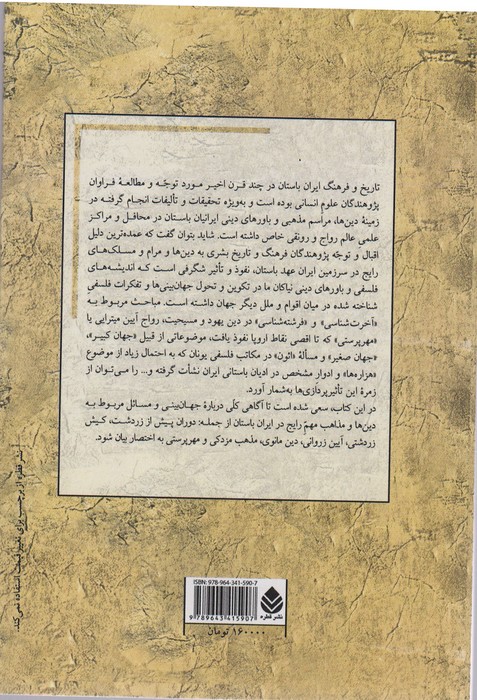 تاریخ و فرهنگ ایران باستان در چند قرن اخیر مورد توجّه و مطالعهٔ فراوان
پژوهندگان علوم انسانی بوده است و به‌ویژه تحقیقات و تألیفات انجام گرفته در
زمینهٔ دین‌ها، مراسم مذهبی و باورهای دینی ایرانیان باستان در محافل و مراکز
علمی عالم رواج و رونقی خاص داشته است. شاید بتوان گفت که عمده‌ترین دلیل
اقبال و توجّه پژوهندگان فرهنگ و تاریخ بشری به دین‌ها و مرام و مسلک‌های
رایج در سرزمین ایران عهد باستان، نفوذ و تأثیر شگرفی است که اندیشه‌های
فلسفی و باورهای دینی نیاکان ما در تکوین و تحول جهان‌بینی‌ها و تفکرات فلسفی
شناخته شده در میان اقوام و ملل دیگر جهان داشته است. مباحث مربوط به
«آخرت‌شناسی» و «فرشته‌شناسی» در دین یهود و مسیحیت، رواج آیین میترایی یا
«مهرپرستی» که تا اقصی نقاط اروپا نفوذ یافت، موضوعاتی از قبیل «جهان کبیر»،
«جهان صغیر» و مسألهٔ «ائون» در مکاتب فلسفی یونان که به احتمال زیاد از موضوع
«هزاره‌ها» و ادوار مشخص در ادیان باستانی ایران نشأت گرفته و... را می‌توان از
زمرهٔ این تأثیرپردازی‌ها به‌شمار آورد.
در این کتاب، سعی شده است تا آگاهی کلّی دربارهٔ جهان‌بینی و مسائل مربوط به
دین‌ها و مذاهب مهم رایج در ایران باستان از جمله: دوران پیش از زردشت، کیش
زردشتی، آیین زروانی، دین مانوی، مذهب مزدکی و مهرپرستی به اختصار بیان شود.
نشر قطره از برچسب برای تغییر قیمت استفاده نمی‌کند.
ISBN: 978-964-341-590-7
9 789643 415907
نشر قطره
۱۶۰۰۰۰ تومان